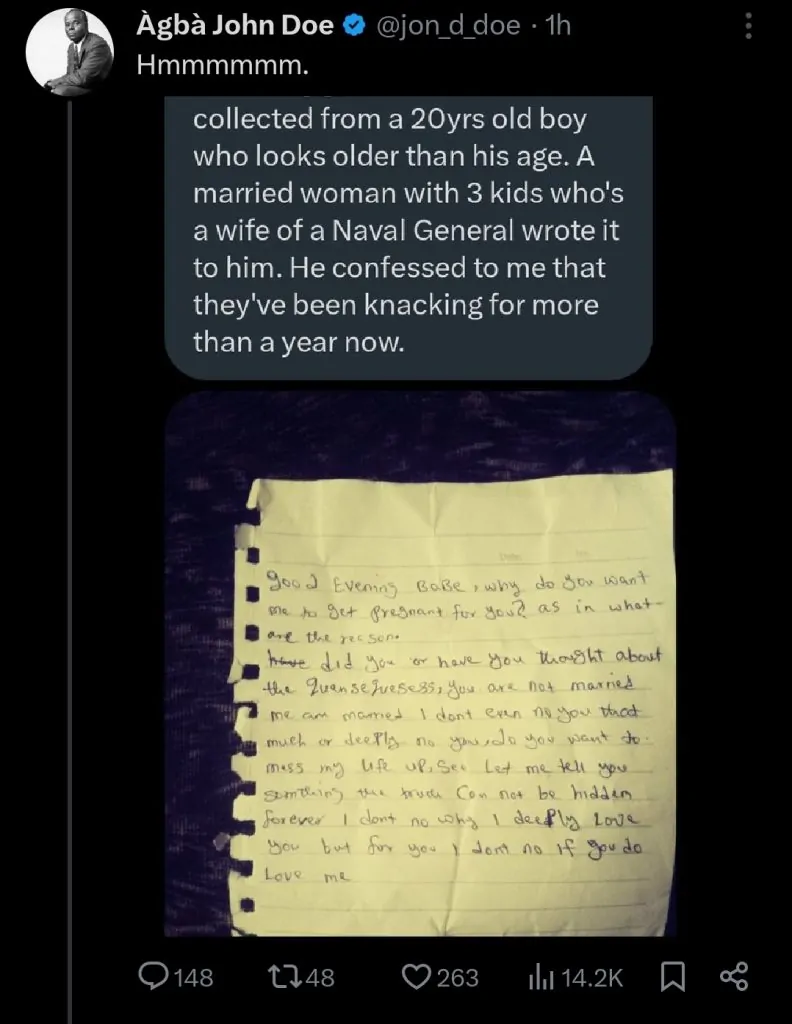 Àgbà John Doe @jon_d_doe · 1h
Hmmmmmm.
collected from a 20yrs old boy
who looks older than his age. A
married woman with 3 kids who's
a wife of a Naval General wrote it
to him. He confessed to me that
they've been knacking for more
than a year now.
good Evening BaBe, why do you want
me to get pregnant for you? as in what
are the reason.
have did you or have you thought about
the quensequesess, you are not married
me am married I dont even no you that
much or deeply no you, do you want to
mess my life up, See Let me tell you
something the truth Can not be hidden
forever I dont no why I deeply Love
you but for you I dont no If you do
Love me
148 48 263 14.2K